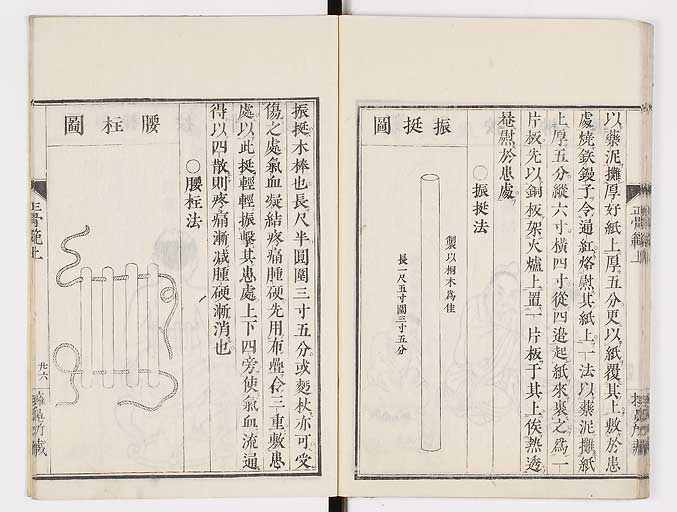 以藥泥攤厚好紙上厚五分更以紙覆其上敷於患
處燒鐵鏝子令通紅烙慰其紙上一法以藥泥攤紙
上厚五分縱六寸橫四寸從四邊起紙來裹之爲一
片板先以銅板架火爐上置一片板于其上俟熱透
慰於患處
○振挺法
振挺圖
製以桐木爲佳
長一尺五寸圍三寸五分
振挺木棒也長尺半圓圍三寸五分或麪杖亦可受
傷之處氣血凝結疼痛腫硬先用布疊合三重敷患
處以此挺輕輕振擊其患處上下四旁使氣血流通
得以四散則疼痛漸減腫硬漸消也
○腰柱法
腰柱圖
正骨範上
廿六